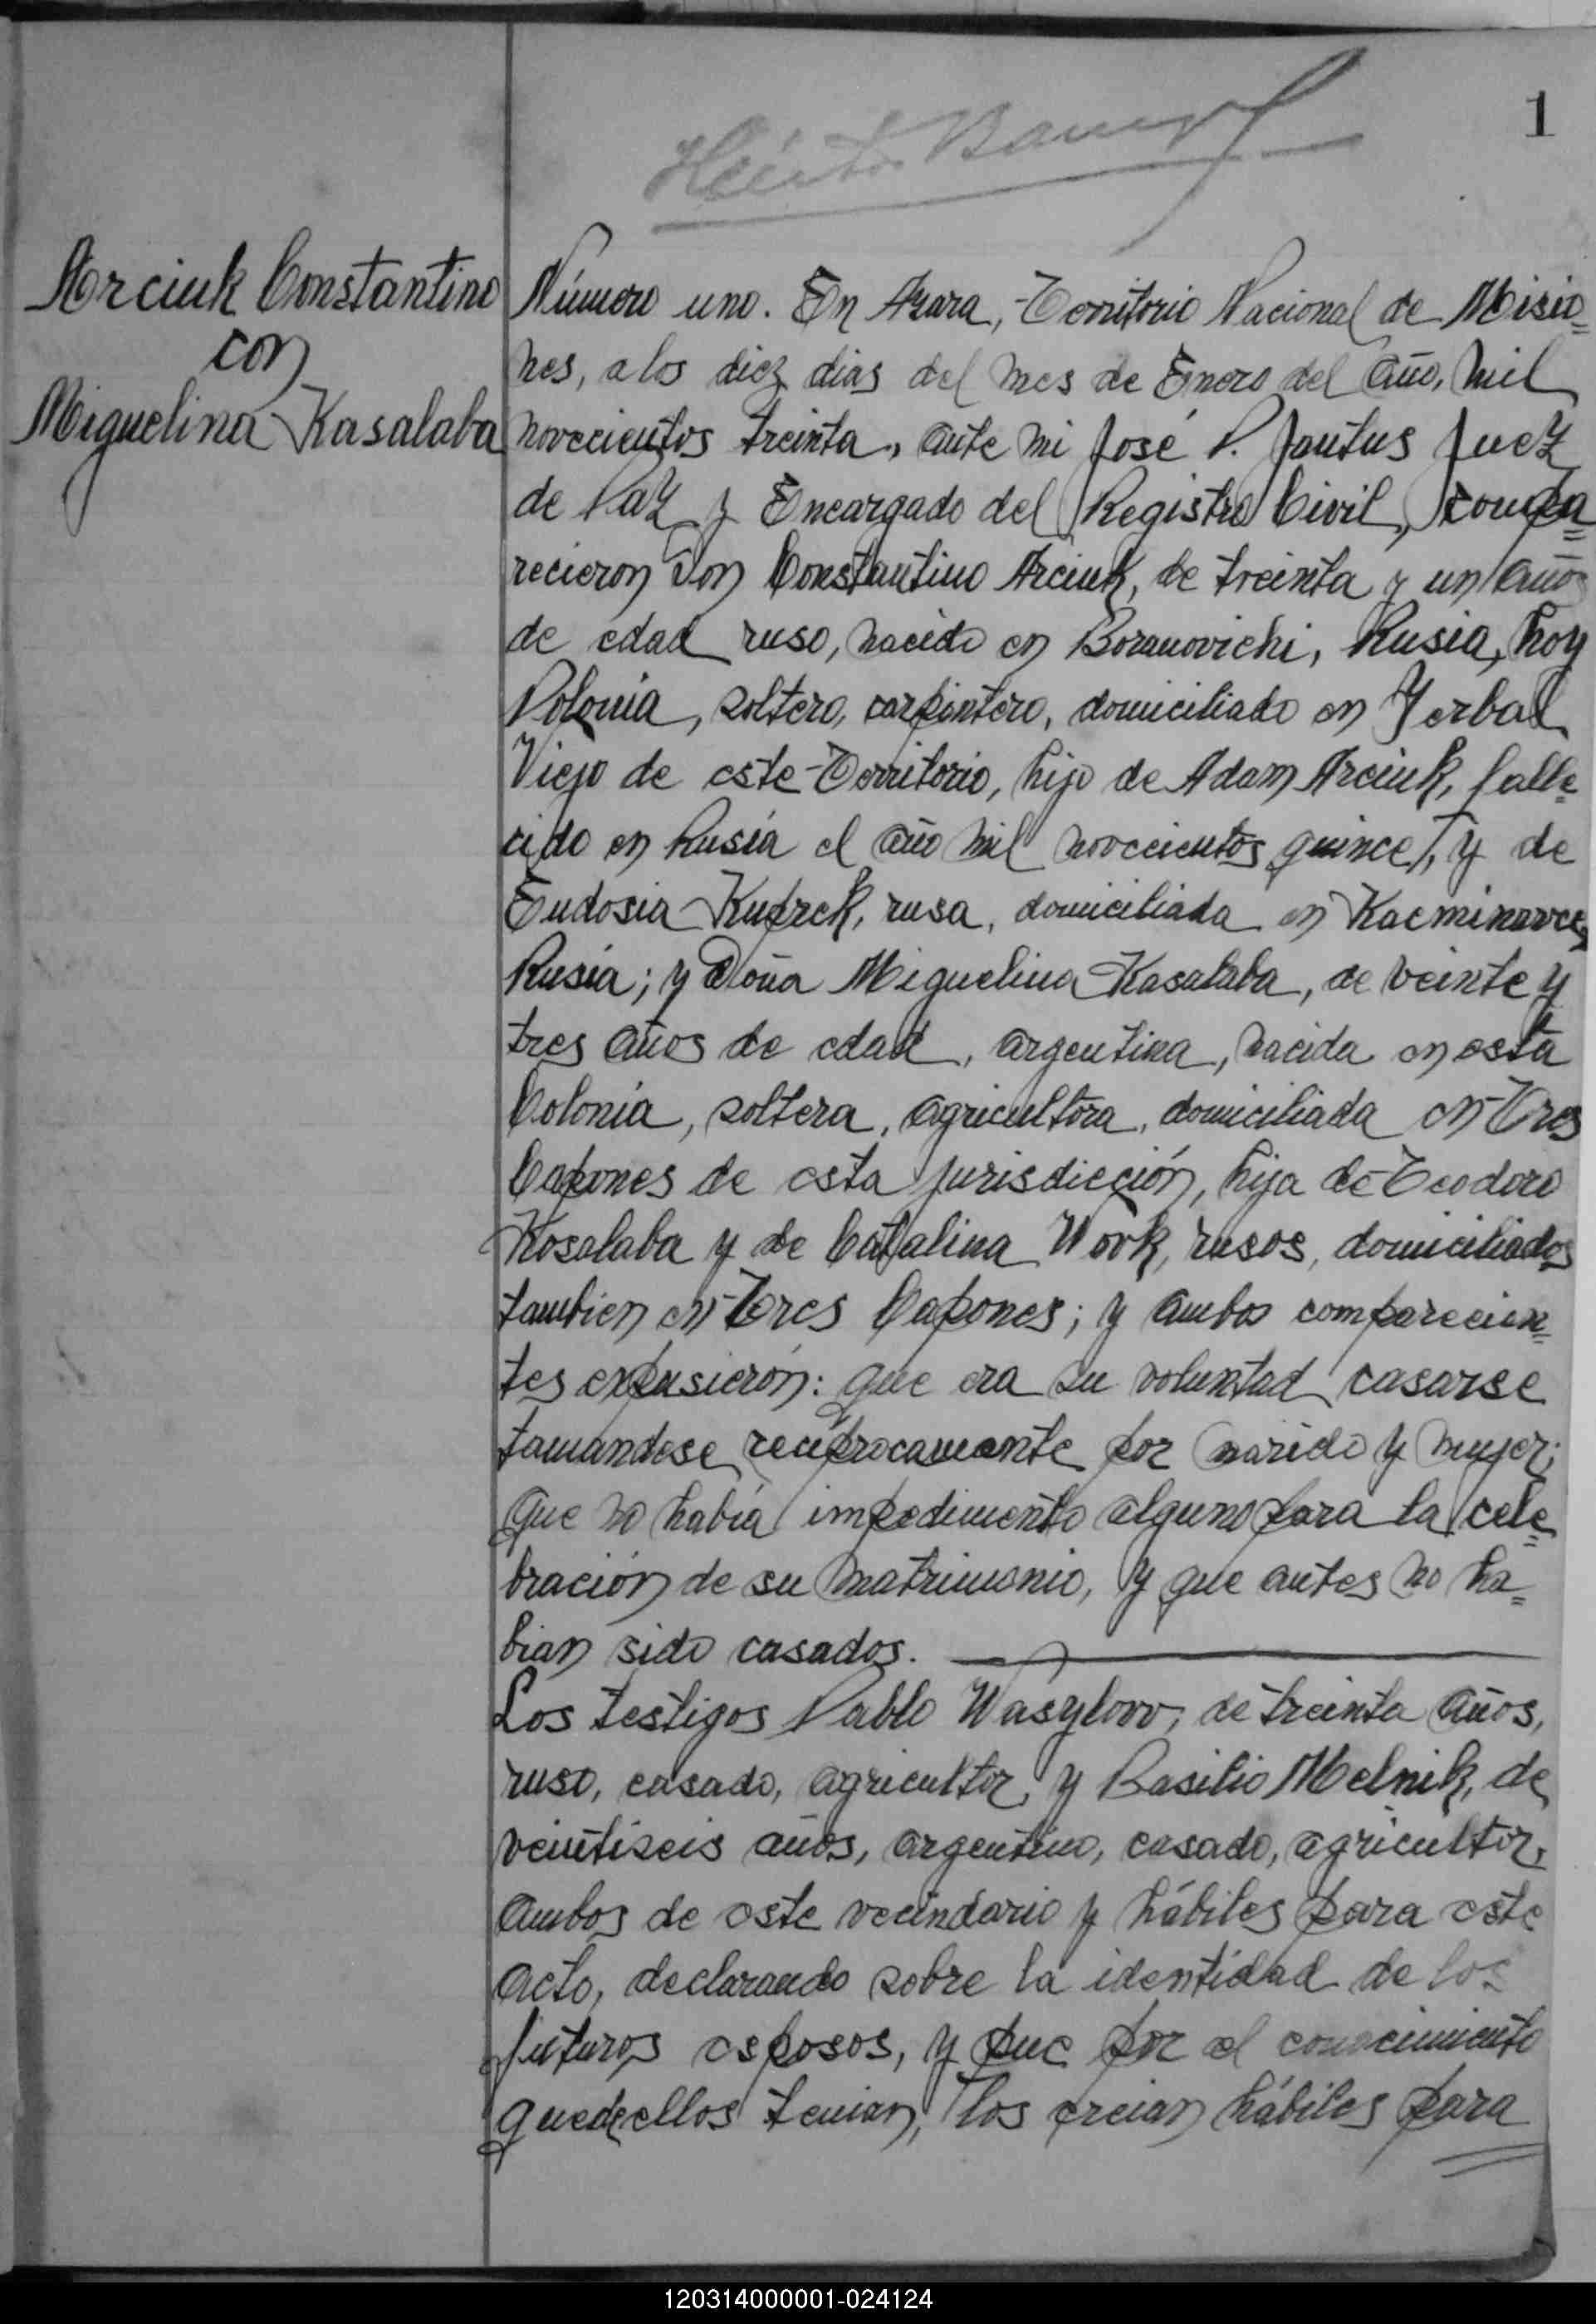 1
Arciuk Constantino
con
Miguelina Kasalaba
Número uno. En Azara, Territorio Nacional de Misio=
nes, a los diez dias del mes de Enero del año, mil
novecientos treinta, ante mi José P. Jantus Juez
de Paz y Encargado del Registro Civil, compa=
recieron Don Constantino Arciuk, de treinta y un años
de edad ruso, nacido en Boranovichi, Rusia, hoy
Polonia, soltero, carpintero, domiciliado en Yerbal
Viejo de este Territorio, hijo de Adam Arciuk, falle=
cido en Rusia el año mil novecientos quince, y de
Eudosia Kuprek, rusa, domiciliada en Kacminovce,
Rusia; y Doña Miguelina Kasalaba, de veinte y
tres años de edad, argentina, nacida en esta
Colonia, soltera, agricultora, domiciliada en Tres
Capones de esta jurisdicción, hija de Teodoro
Kosalaba y de Catalina Work, rusos, domiciliados
tambien en Tres Capones; y ambos comparecien=
tes expusierón: que era su voluntad casarse
tamandose reciprocamente por marido y mujer;
que no había impedimento alguno para la cele=
bración de su matrimonio, y que antes no ha=
bian sido casados.
Los testigos Pablo Wasylow, de treinta años,
ruso, casado, agricultor, y Basilio Melnik, de
veintiseis años, argentino, casado, agricultor,
ambos de este vecindario y hábiles para este
acto, declarando sobre la identidad de los
futuros esposos, y que por el conocimiento
que de ellos tenian, los creian hábiles para
120314000001-024124